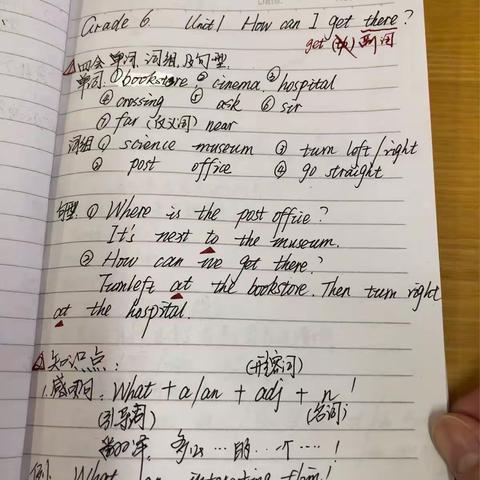 Grade 6 Unit 1 How can I get there?
get ( 到) 副词
四会单词、词组及句型
单词 ①bookstore ②cinema ③hospital
④crossing ⑤ ask ⑥ sir
⑦ far (反义词) near
词组 ① science museum ③ turn left/right
② post office ④ go straight
句型: ① Where is the post office?
It's next to the museum.
② How can we get there?
Turn left at the bookstore. Then turn right
at the hospital.
知识点:
(形容词)
1. 感叹句: What + a/an + adj + n !
(引导词) (名词)
多么…的…个…!
例: What an interesting film!